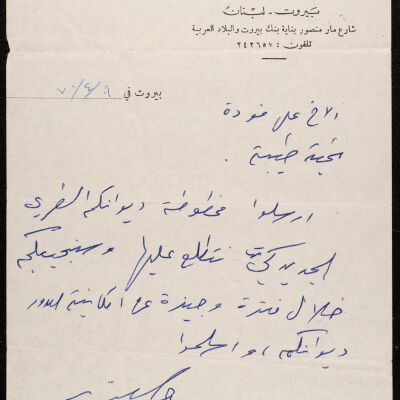 بيروت - لبنان
شارع مار منصور بناية بنك بيروت والبلاد العربية
تلفون : ٢٤٢٦٥٧
بيروت في ٧٠/٤/٦
الاخ علي فودة
تحية طيبة .
ارسلوا مخطوطة ديوانكم الشعري
الجديد كي نتطلع عليها وسنجيبكم
خلال فترة وجيزة عن امكانية صدور
ديوانكم ، واسلموا